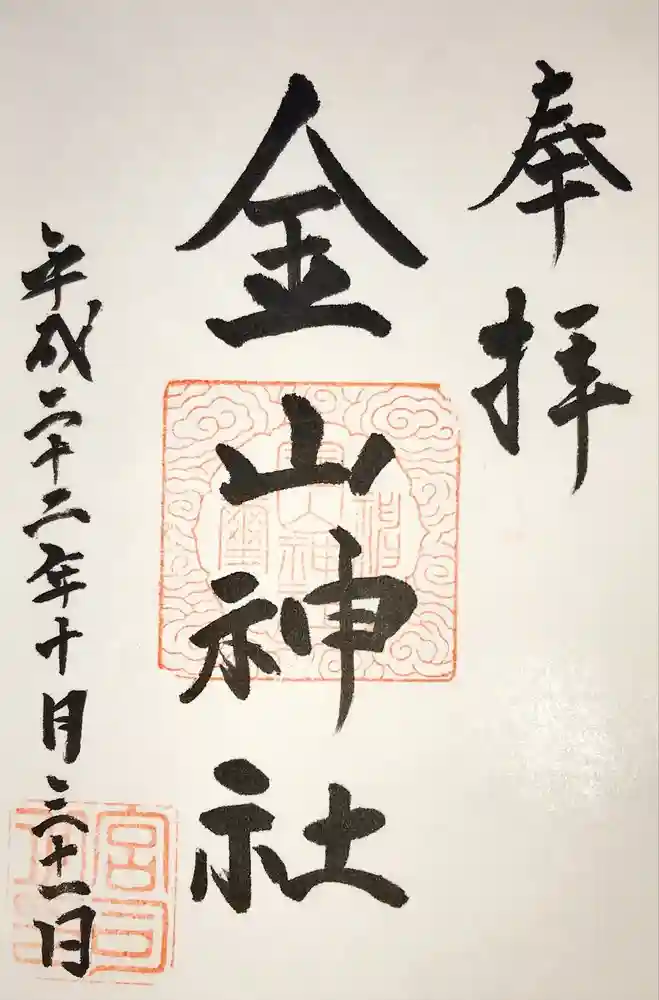 奉拝
金山神社
平成二十二年十月三十一日
宮司